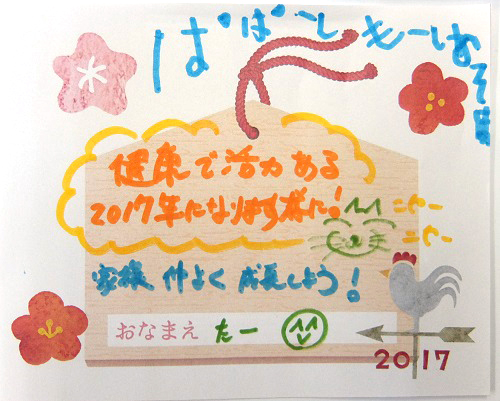 健康で活力ある
2017年になりますように!
にゃー
にゃー
家族 仲よく 成長しよう!
おなまえ たー
2017